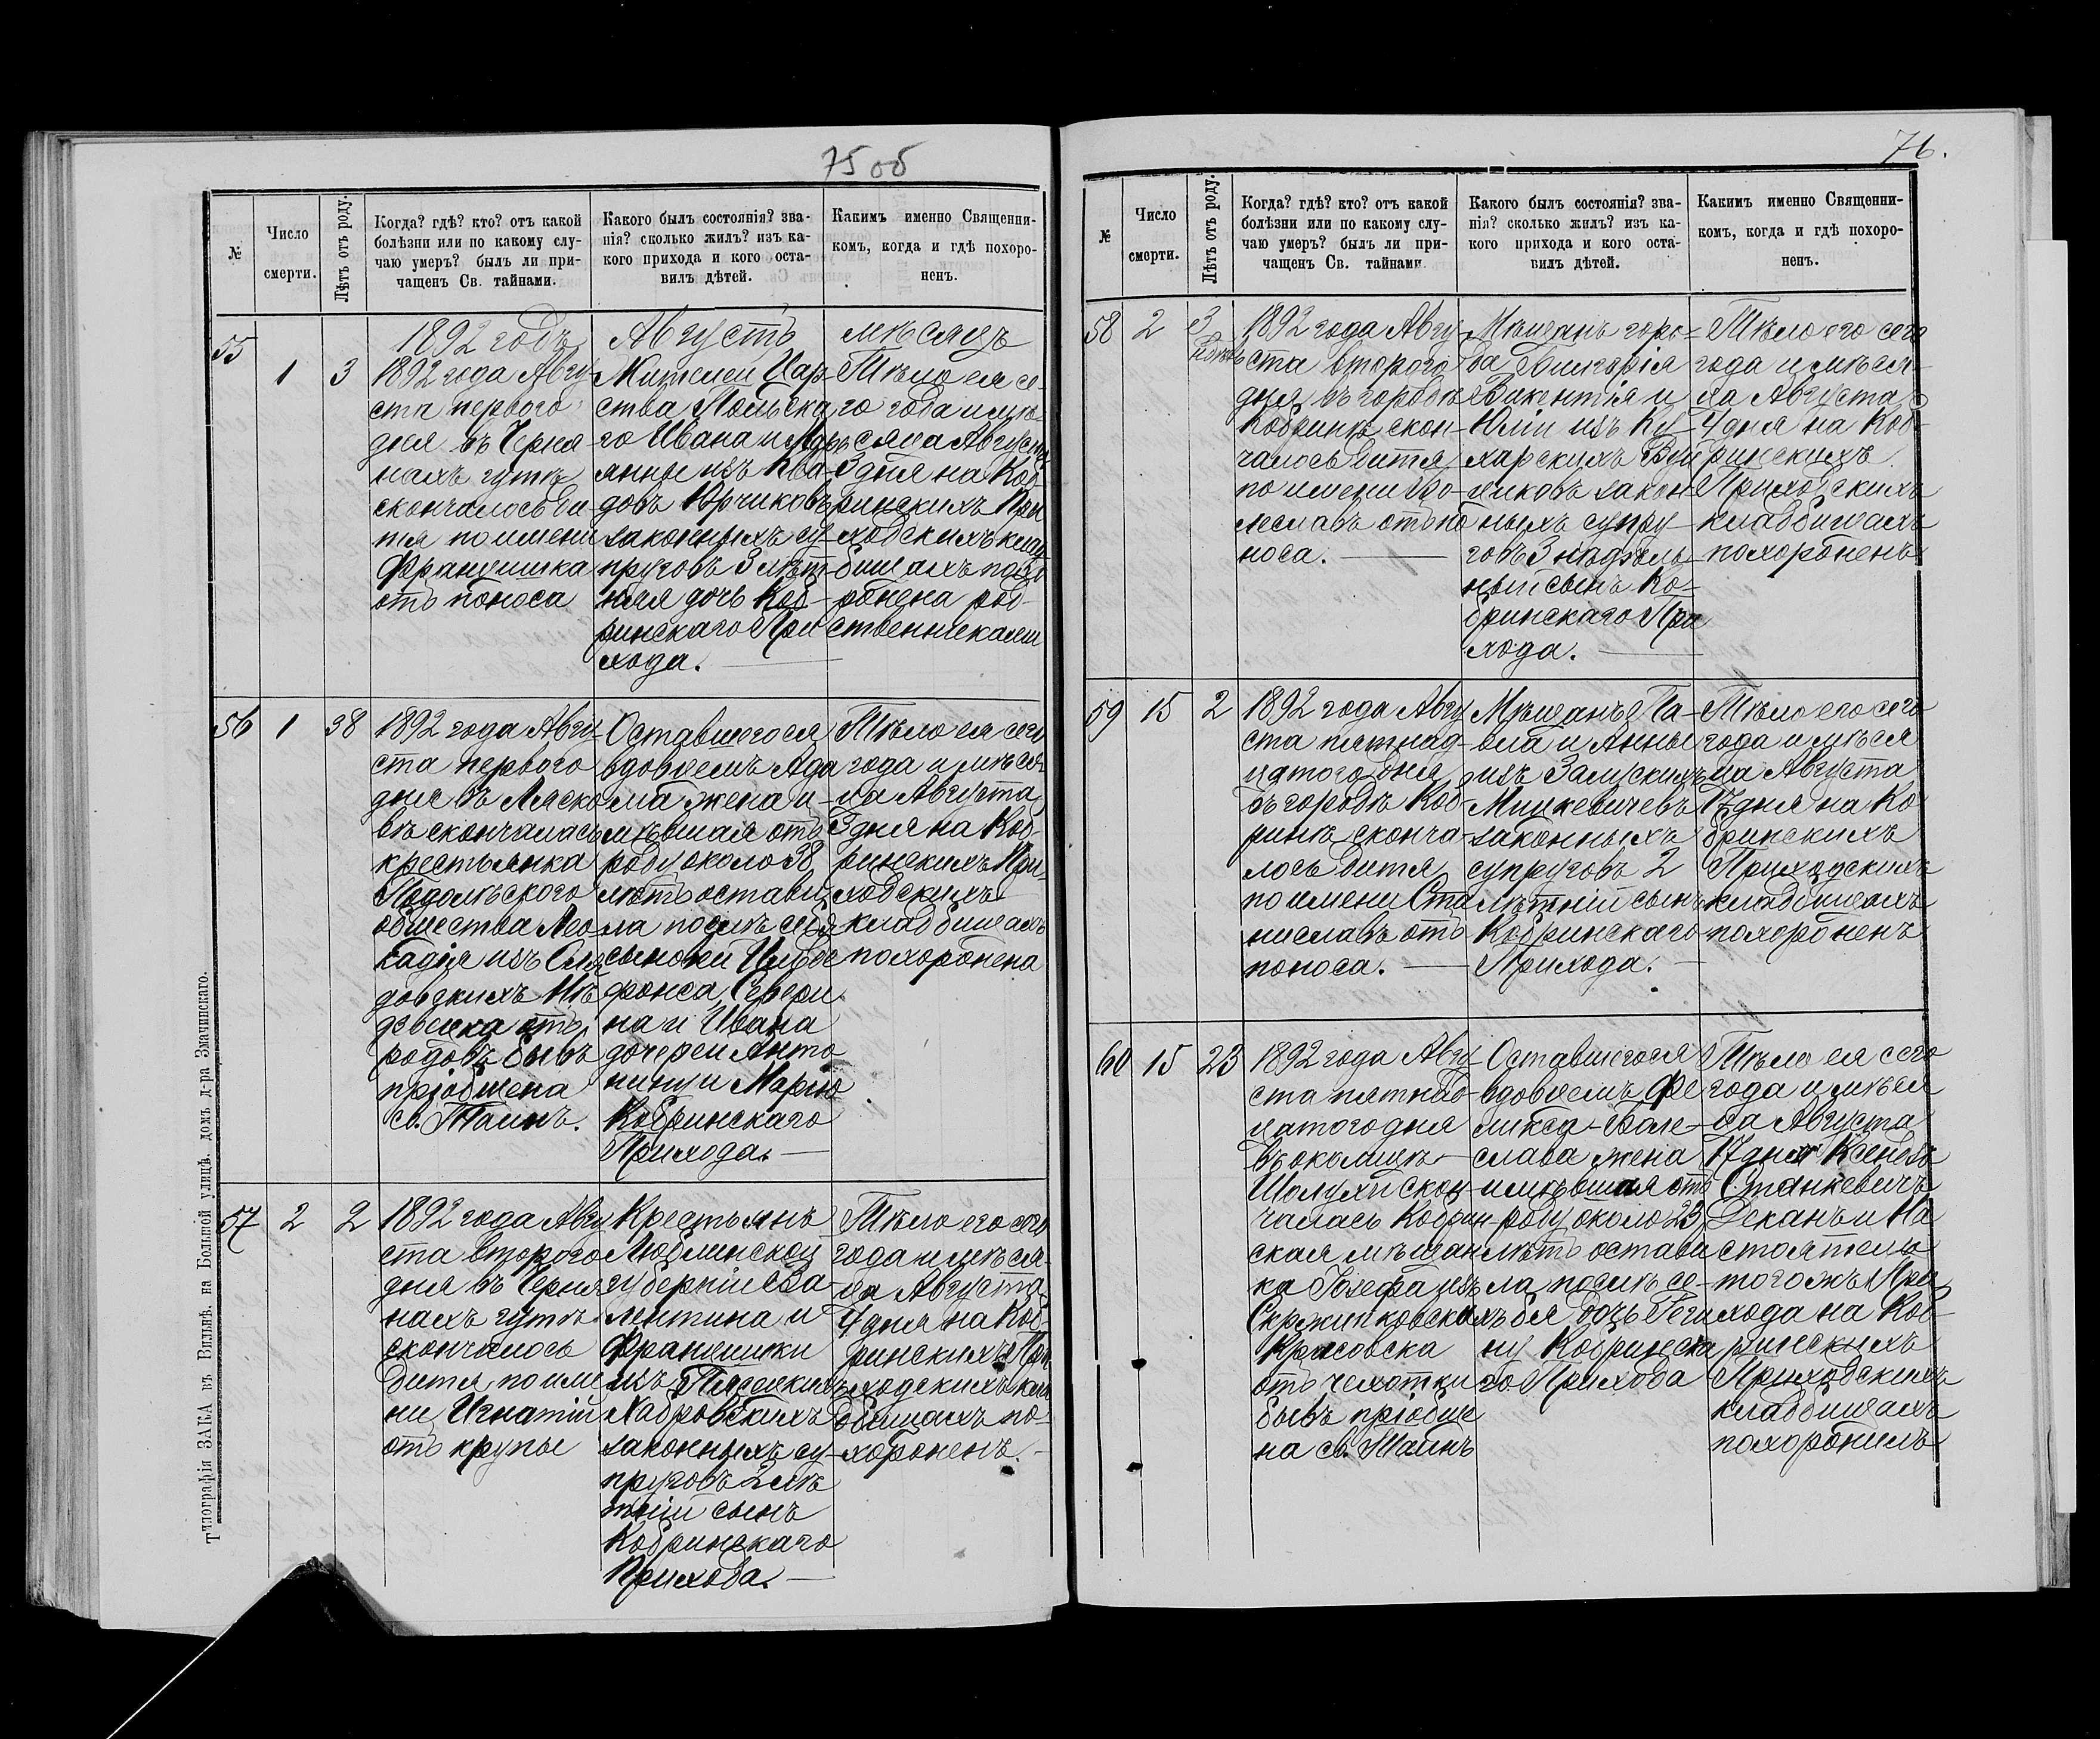 75 об
№
Число
смерти.
Лѣтъ отъ роду.
Когда? гдѣ? кто? отъ какой
болѣзни или по какому слу-
чаю умеръ? былъ ли при-
чащенъ Св. тайнами.
Какого былъ состоянія? зва-
нія? сколько жилъ? изъ ка-
кого прихода и кого оста-
вилъ дѣтей.
Какимъ именно Священни-
комъ, когда и гдѣ похоро-
ненъ.
1892 годъ Августъ мѣсяцъ
55
1
3
1892 года Авгу-
ста перваго
дня въ Черня
нахъ гутѣ
скончалось ди
тя по имени
Францишка
отъ поноса
Жителей Цар-
ства Польска
го Ивана и Мар
янны изъ Ква-
довъ Юрчиковъ
законныхъ су-
пруговъ 3 лѣт-
няя дочь Коб-
ринскаго При
хода.
Тѣло ея се-
го года и мѣ-
сяца Августа
3 дня на Коб
ринскихъ При
ходскихъ клад
бищахъ похо
ронена род-
ственниками
56
1
38
1892 года Авгу-
ста перваго
дня въ Ляско
вѣ скончалась
крестьянка
Подольского
общества Лео
кадія изъ
довскихъ
отъ
родовъ бывъ
пріобщена
св. Таинъ.
Оставшегося
вдовцемъ Ада
ма жена и-
мѣвшая отъ
роду около 38
лѣтъ остави
ла послѣ себя
сыновей Ильде
фонса Севери
на и Ивана
дочерей Анто
нину и Марію
Кобринскаго
Прихода.
Тѣло ея сего
года и мѣся
ца Августа
3 дня на Коб-
ринскихъ При-
ходскихъ
кладбищахъ
похоронена
57
2
2
1892 года Авгу
ста второго
дня въ Черня
нахъ гутѣ
скончалось
дитя по име
ни Игнатій
отъ крупы
Крестьянъ
Люблинской
губерніи Ва-
лентина и
Францишки
изъ
законныхъ су-
пруговъ 2 лѣ
тній сынъ
Кобринскаго
Прихода.
Тѣло его сего
года и мѣся-
ца Августа
4 дня на Коб-
ринскихъ При
ходскихъ клад
бищахъ по-
хороненъ.
Типографія ЗАКА въ Вильнѣ, на Большой улицѣ, домъ д-ра Змачинскаго.
76.
№
Число
смерти.
Лѣтъ отъ роду.
Когда? гдѣ? кто? отъ какой
болѣзни или по какому слу-
чаю умеръ? былъ ли при-
чащенъ Св. тайнами.
Какого былъ состоянія? зва-
нія? сколько жилъ? изъ ка-
кого прихода и кого оста-
вилъ дѣтей.
Какимъ именно Священни-
комъ, когда и гдѣ похоро-
ненъ.
58
2
3
1892 года Авгу
ста второго
дня въ городѣ
Кобринѣ скон-
чалось дитя
по имени Бо-
леславъ отъ по
носа.
Мѣщанъ горо-
да
Викентія и
Юліи изъ Ку-
харскихъ Вуй
циковъ закон-
ныхъ супру-
говъ 3 недѣль
ный сынъ Ко-
бринскаго При
хода.
Тѣло его сего
года и мѣся-
ца Августа
4 дня на Коб-
ринскихъ
Приходскихъ
кладбищахъ
похороненъ
59
15
2
1892 года Авгу
ста пятнад-
цатого дня
въ городѣ Коб-
ринѣ сконча-
лось дитя
по имени Ста
ниславъ отъ
поноса.
Мѣщанъ Па-
вла и Анны
изъ Залускихъ
Мицкевичевъ
законныхъ
супруговъ 2
лѣтній сынъ
Кобринскаго
Прихода.
Тѣло его сего
года и мѣся
ца Августа
17 дня на Ко
бринскихъ
Приходскихъ
кладбищахъ
похороненъ
60
15
23
1892 года Авгу
ста пятнад-
цатого дня
въ околицѣ
Шолухи скон-
чалась Кобрин-
ская мѣщан
ка Юзефа изъ
Скржипковскихъ
Красовска
отъ чахотки
бывъ пріобще
на св. Таинъ
Оставшегося
вдовцемъ Фе
ликса-Боле-
слава жена
имѣвшая отъ
роду около 23
лѣтъ остави
ла послѣ се-
бя дочь Геги
ну Кобринска
го Прихода
Тѣло ея сего
года и мѣся
ца Августа
17 дня Ксендзъ
Станкевичъ
Деканъ и На
стоятель
того жъ При
хода на Коб-
ринскихъ
Приходскихъ
кладбищахъ
похоронилъ